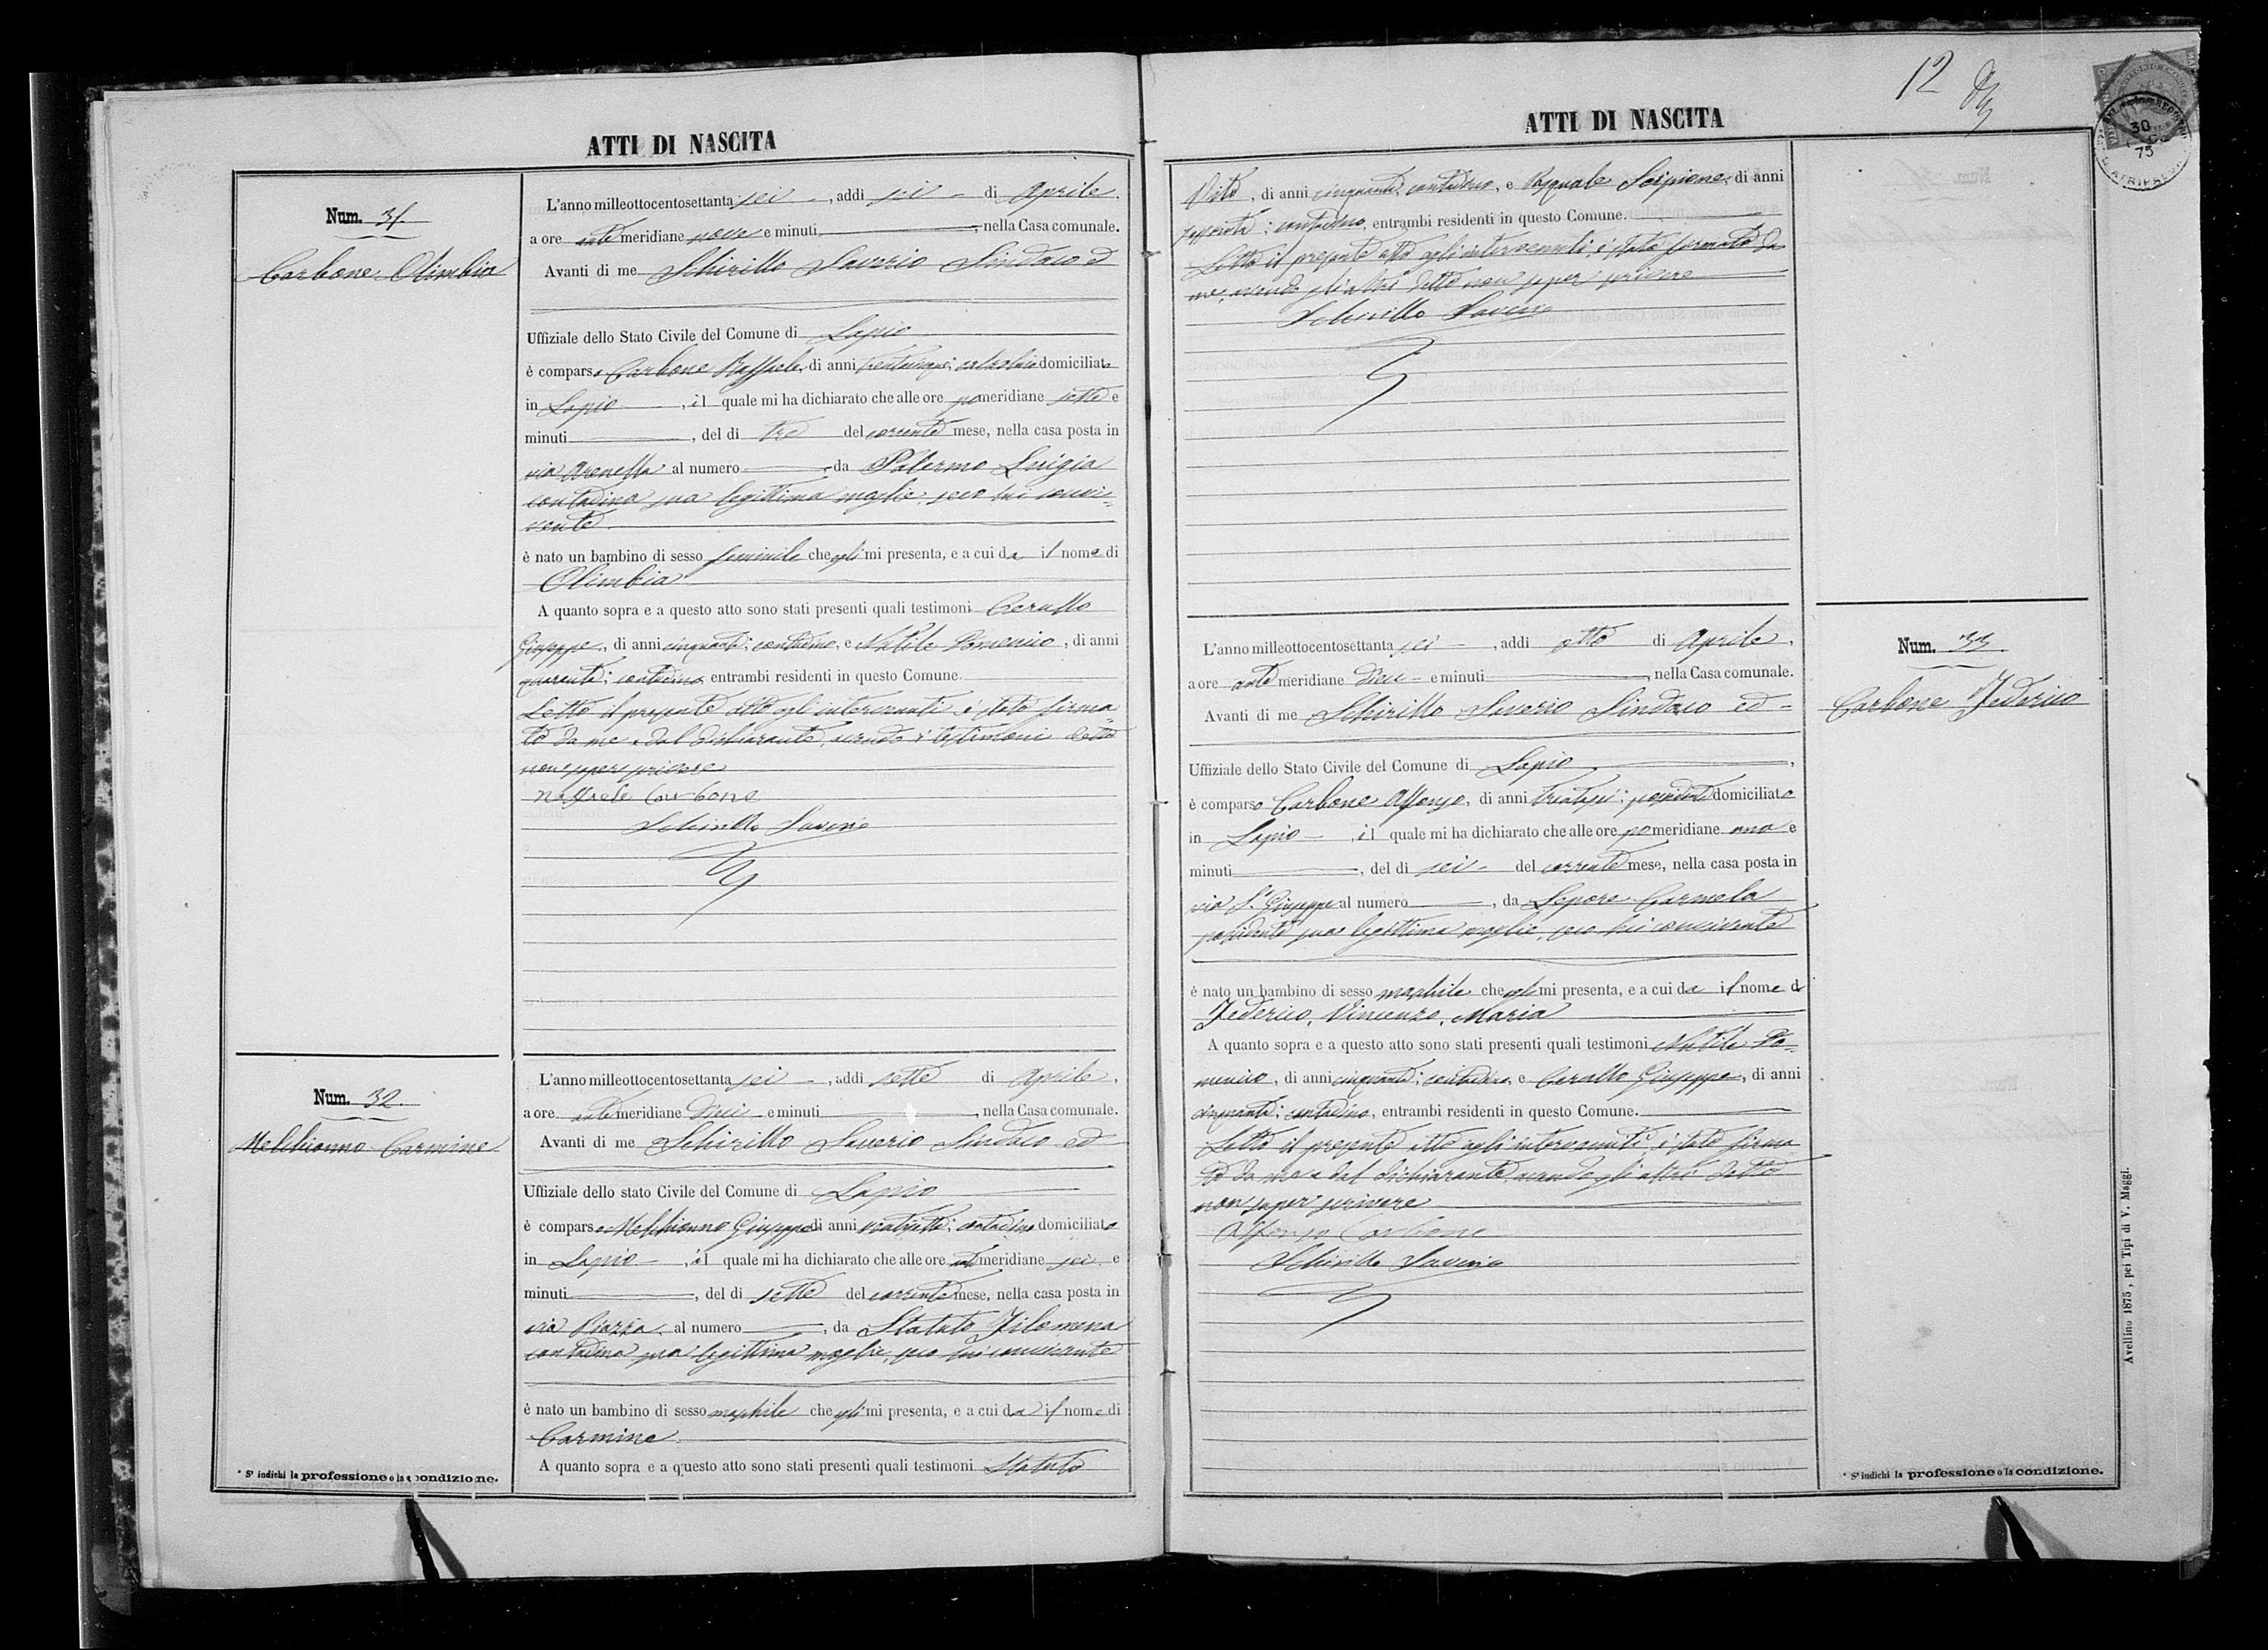 ATTI DI NASCITA
Num. 31.
Carbone Olimbia
L'anno milleottocentosettanta sei, addi sei di Aprile,
a ore ante meridiane nove e minuti, nella Casa comunale.
Avanti di me Schirillo Saverio Sindaco ed
Uffiziale dello Stato Civile del Comune di Lapio
è comparso Carbone Raffaele, di anni trentacinque; calzolaio domiciliato
in Lapio, il quale mi ha dichiarato che alle ore pomeridiane sette e
minuti, del dì tre del corrente mese, nella casa posta in
via Arenella al numero, da Palermo Luigia
contadina sua legittima moglie, seco lui convi=
vente
è nato un bambino di sesso feminile che egli mi presenta, e a cui da il nome di
Olimbia
A quanto sopra e a questo atto sono stati presenti quali testimoni Cerullo
Giuseppe, di anni cinquanta; contadino, e Nutile Domenico, di anni
quaranta; contadino, entrambi residenti in questo Comune.
Letto il presente atto agl'intervenuti è stato firma=
to da me e dal dichiarante, avendo i testimoni detto
non saper scrivere
Raffaele Carbone
Schirillo Saverio
Num. 32.
Melchionno Carmine
L'anno milleottocentosettanta sei, addi sette di Aprile,
a ore ante meridiane dieci e minuti, nella Casa comunale.
Avanti di me Schirillo Saverio Sindaco ed
Uffiziale dello stato Civile del Comune di Lapio
è comparso Melchionno Giuseppe di anni ventisette; contadino domiciliato
in Lapio, il quale mi ha dichiarato che alle ore antimeridiane sei e
minuti, del dì sette del corrente mese, nella casa posta in
via Piazza al numero, da Statuto Filomena
contadina sua legittima moglie, seco lui convivente
è nato un bambino di sesso maschile che egli mi presenta, e a cui da il nome di
Carmine
A quanto sopra e a questo atto sono stati presenti quali testimoni Statuto
* Si indichi la professione o la condizione.
12
ATTI DI NASCITA
30
75
Vito, di anni cinquanta, contadino, e Pasquale Scipione, di anni
sessanta; contadino, entrambi residenti in questo Comune.
Letto il presente atto agli intervenuti, è stato firmato da
me, avendo gli altri detto non saper scrivere
Schirillo Saverio
Num. 33
Carbone Federico
L'anno milleottocentosettanta sei, addi otto di Aprile,
a ore ante meridiane dieci e minuti, nella Casa comunale.
Avanti di me Schirillo Saverio Sindaco ed
Uffiziale dello Stato Civile del Comune di Lapio,
è comparso Carbone Alfonso, di anni trentasei; possidente domiciliato
in Lapio, il quale mi ha dichiarato che alle ore pomeridiane una e
minuti, del dì sei del corrente mese, nella casa posta in
via S. Giuseppe al numero, da Lepore Carmela
possidente sua legittima moglie, seco lui convivente
è nato un bambino di sesso maschile che egli mi presenta, e a cui da il nome d
Federico, Vincenzo, Maria
A quanto sopra e a questo atto sono stati presenti quali testimoni Nutile Do=
menico, di anni cinquanta; contadino, e Cerullo Giuseppe, di anni
cinquanta; contadino, entrambi residenti in questo Comune.
Letto il presente atto agli intervenuti, è stato firma
to da me e dal dichiarante, avendo gli altri detto
non saper scrivere
Alfonso Carbone
Schirillo Saverio
* Si indichi la professione o la condizione.
Avellino 1875, pei Tipi di V. Maggi.